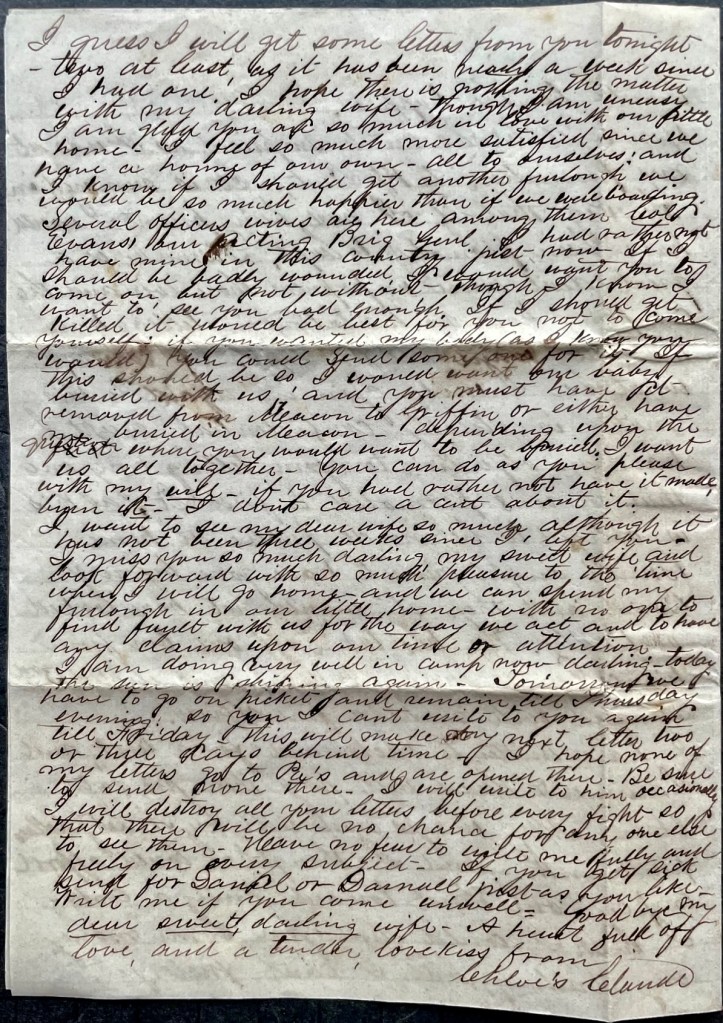 I guess I will get some letters from you tonight
- two at least, as it has been nearly a week since
I had one. I hope there is nothing the matter
with my darling wife - though I am uneasy
I am glad you are so much in love with our little
home - I feel so much more satisfied since we
have a home of our own - all to ourselves; and
I know if I should get another furlough we
would be so much happier than if we were boarding.
Several officers wives are here among them Col
Evans, our acting Brig Genl. I had rather not
have mine in this country just now. If I
should be badly wounded I would want you to
come on but not without - though I know I
want to see you bad enough. If I should get
killed it would be best for you not to come
yourself; if you wanted my body (as I know you
would) you could send some one for it. If
this should be so I would want our baby
buried with us, and you must have it
removed from Meacon to Griffin or either have
buried in Meacon - depending upon the
where you would want to be buried. I want
us all together - You can do as you please
with my will - if you had rather not have it made,
burn it - I dont care a cent about it.
I want to see my dear wife so much although it
has not been three weeks since I left you -
I miss you so much darling, my sweet wife and
look forward with so much pleasure to the time
when I will go home - and we can spend my
furlough in our little home - with no one to
find fault with us for the way we act and to have
any claims upon our time or attention
I am doing very well in camp now darling - today
the sun is shining again - Tomorrow we
have to go on picket and remain till Thursday
evening. so you I cant write to you again
till Friday - this will make my next letter two
or three days behind time - I hope none of
my letters go to Pa's and are opened there - Be sure
to send none there - I will write to him occasionally
I will destroy all your letters before every fight so
that there will be no chance for any one else
to see them - Have no fear to write me fully and
freely on every subject - If you get sick
send for Daniel or Darnall just as you like -
Write me if you come unwell = Good bye my
dear sweet, darling wife - A heart full of
love, and a tender, love kiss from
Chloe's Claude